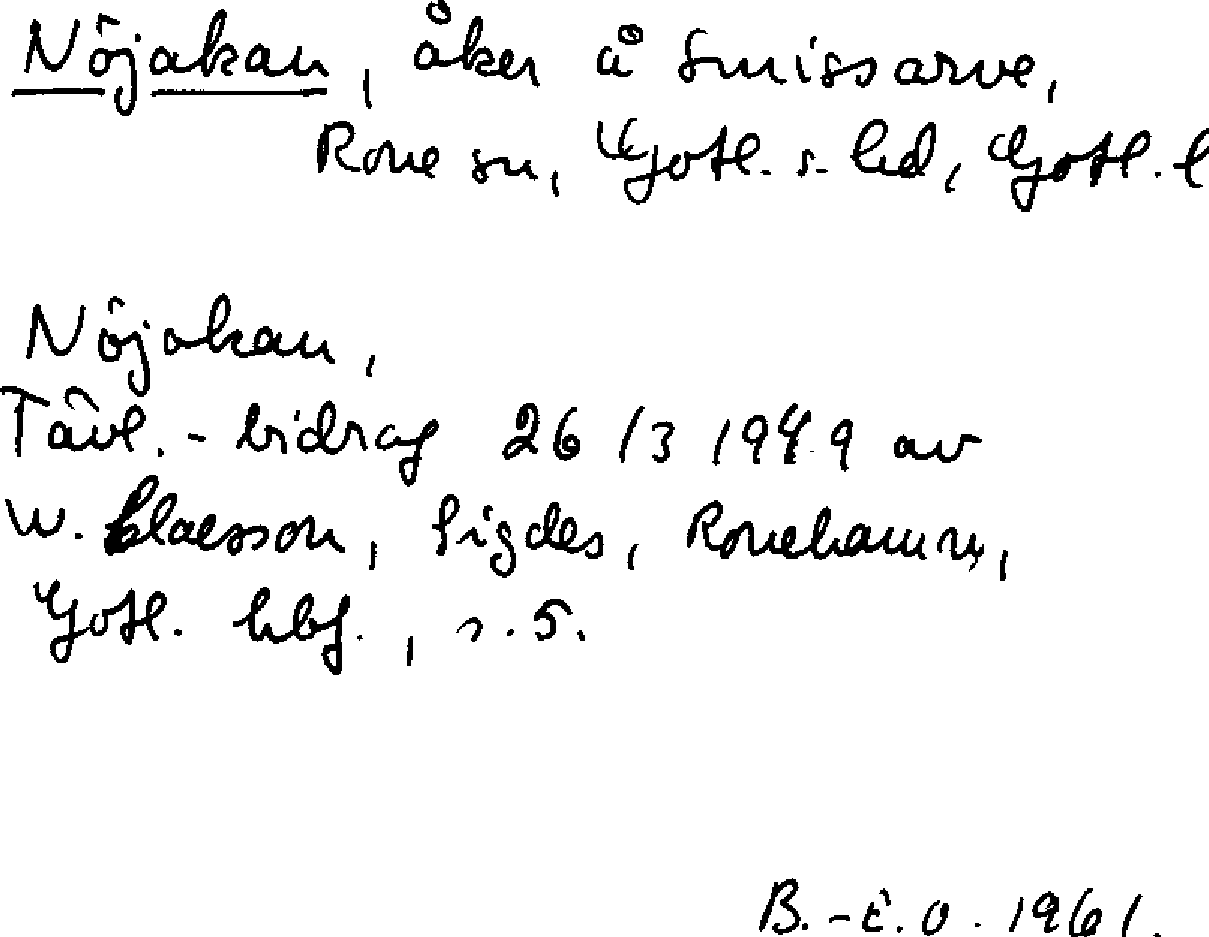 Nöjakan, åker å Smissarve,
Rone sn, Gotl. s. hd, Gotl. l
Nöjakan,
Tävl.-bidrag 26/3 1949 av
W. Claesson, Sigdes, Ronehamn,
Gotl. hbf., s. 5.
B.-E. O. 1961.